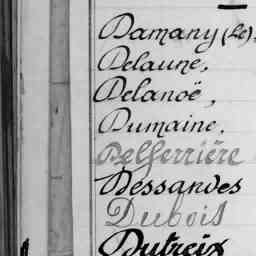 Damany (Le).
Delaune,
Delanoë,
Dumaine,
Delferrière
Dessandes
Dubois
Dutreix